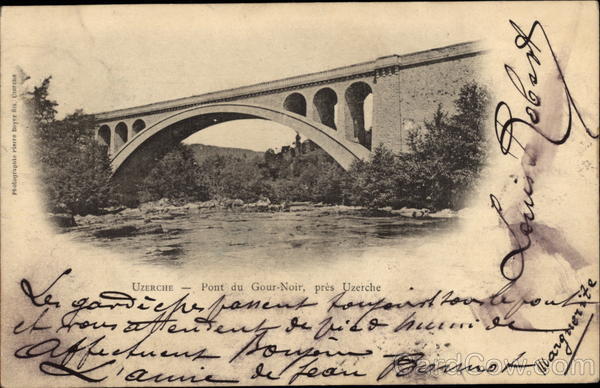 Photographie Pierre Boyer fils, Uzerche
UZERCHE — Pont du Gour-Noir, près Uzerche
Louise Robert
Les gardèche passent toujours sous le pont
et vous attendent de pied
Affectueux Bonjour
L'amie de Jean
Marguerite
CardCow.com